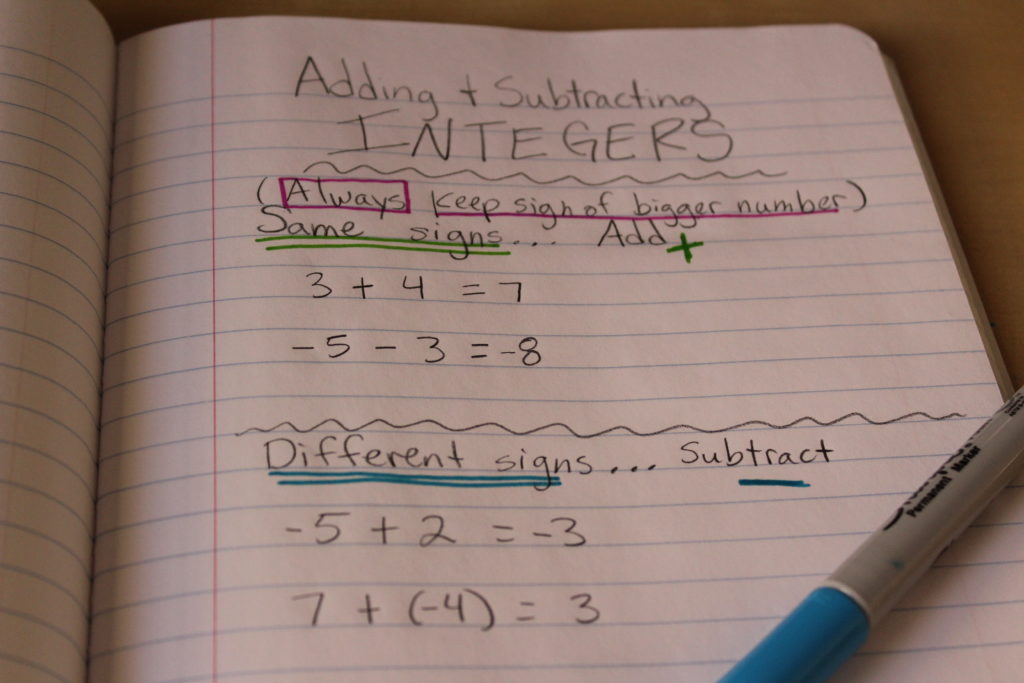 Adding + Subtracting
INTEGERS
(Always keep sign of bigger number)
Same signs... Add +
3 + 4 = 7
-5 - 3 = -8
Different signs... Subtract
-5 + 2 = -3
7 + (-4) = 3
Permanent Marker